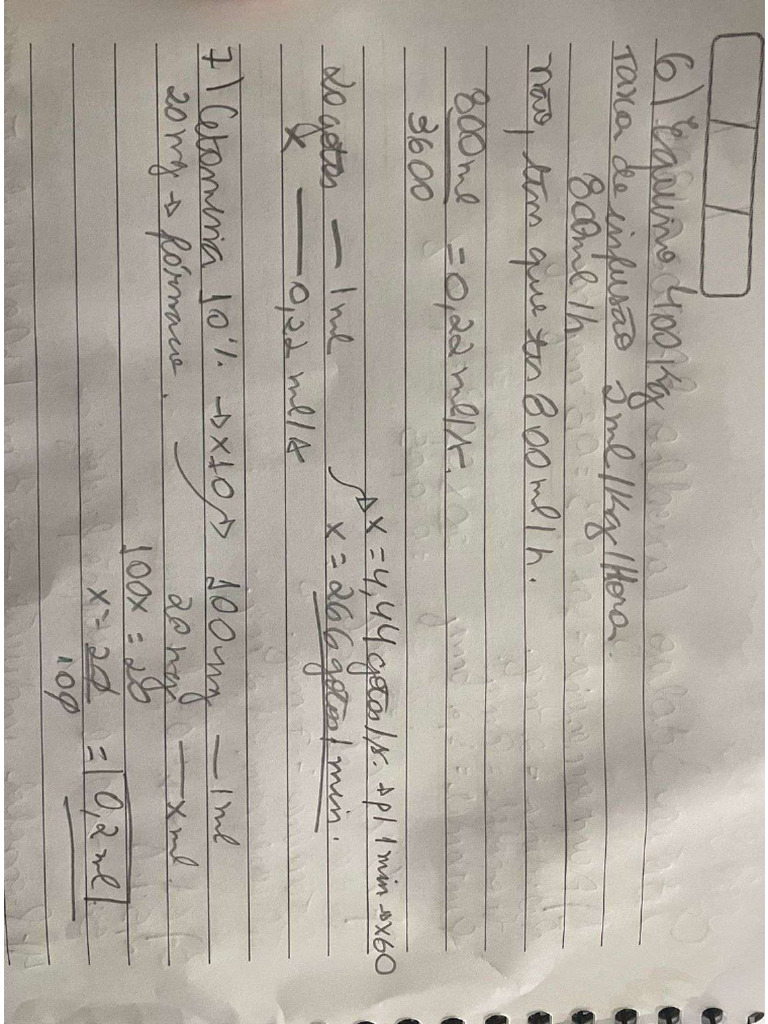 6) Equino 400 Kg
Taxa de infusão 2ml/Kg/Hora.
800ml/h
não, tem que ter 800ml/h.
800ml = 0,22ml/s.
3600
x = 4,44 gotas/s. → p/ 1 min → x60
20 gotas — 1ml
x = 266 gotas/min.
x — 0,22ml/s
7) Cetamina 10% → x10 → 100mg — 1ml
20mg → fármaco.
20mg — x ml.
100x = 20
x = 20 = 0,2ml.
100